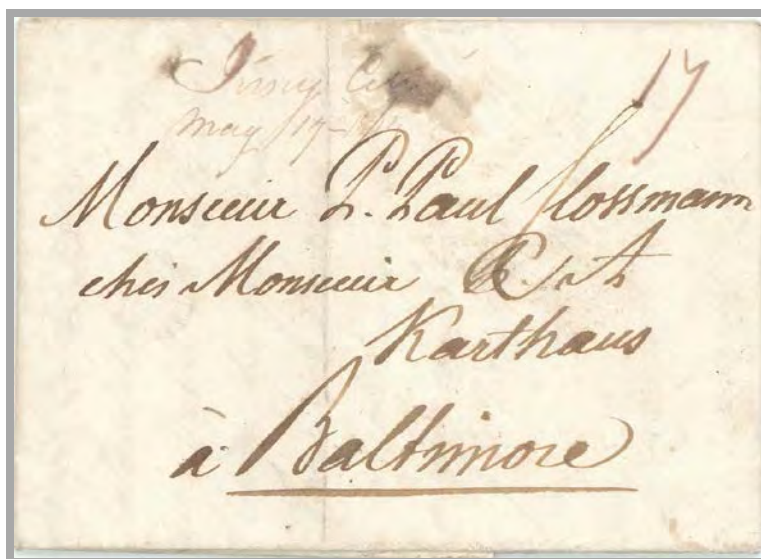 17
May 17
Monsieur P. Paul flossmann
chés Monsieur P. A
Karthaus
à Baltimore